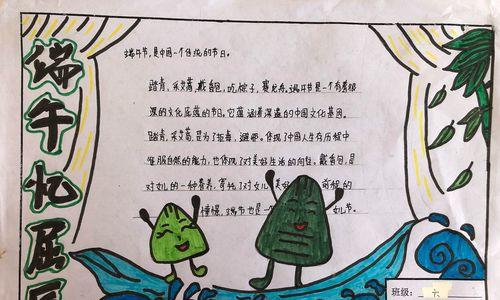 端午忆屈
端午节,是中国一个传统的节日。
踏青,采艾蒿,戴香包,吃粽子,赛龙舟,端午节是一个有着极
深的文化底蕴的节日。它蕴涵着深邃的中国文化基因。
踏青,采艾蒿,是为了驱毒,避邪。体现了中国人生存历程中
征服自然的能力,也体现了对美好生活的向往。戴香包,是
对女儿的一种赞养,寄托了对女儿美好 前程的
憧憬,端午也是一个 女儿节。
班级: 六